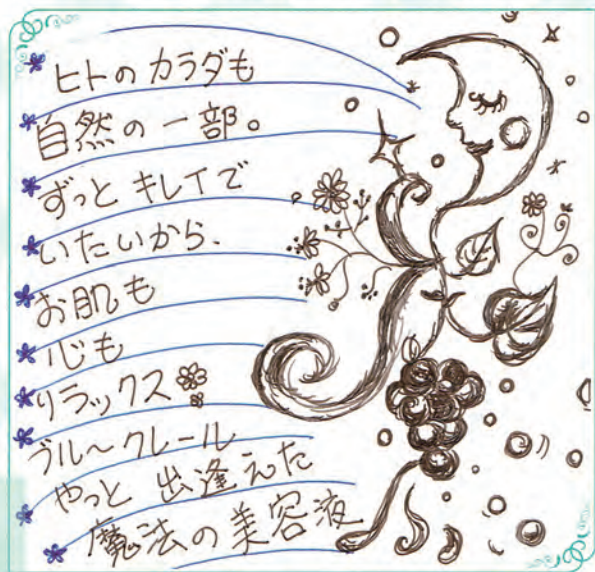 ヒトのカラダも
自然の一部。
ずっと キレイで
いたいから、
お肌も
心も
リラックス
ブル〜クレール
やっと 出逢えた
魔法の美容液